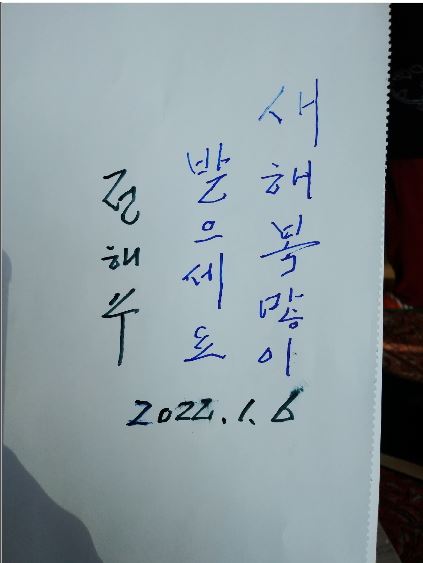 새해복많이
받으세요
정해수
2022.1.6